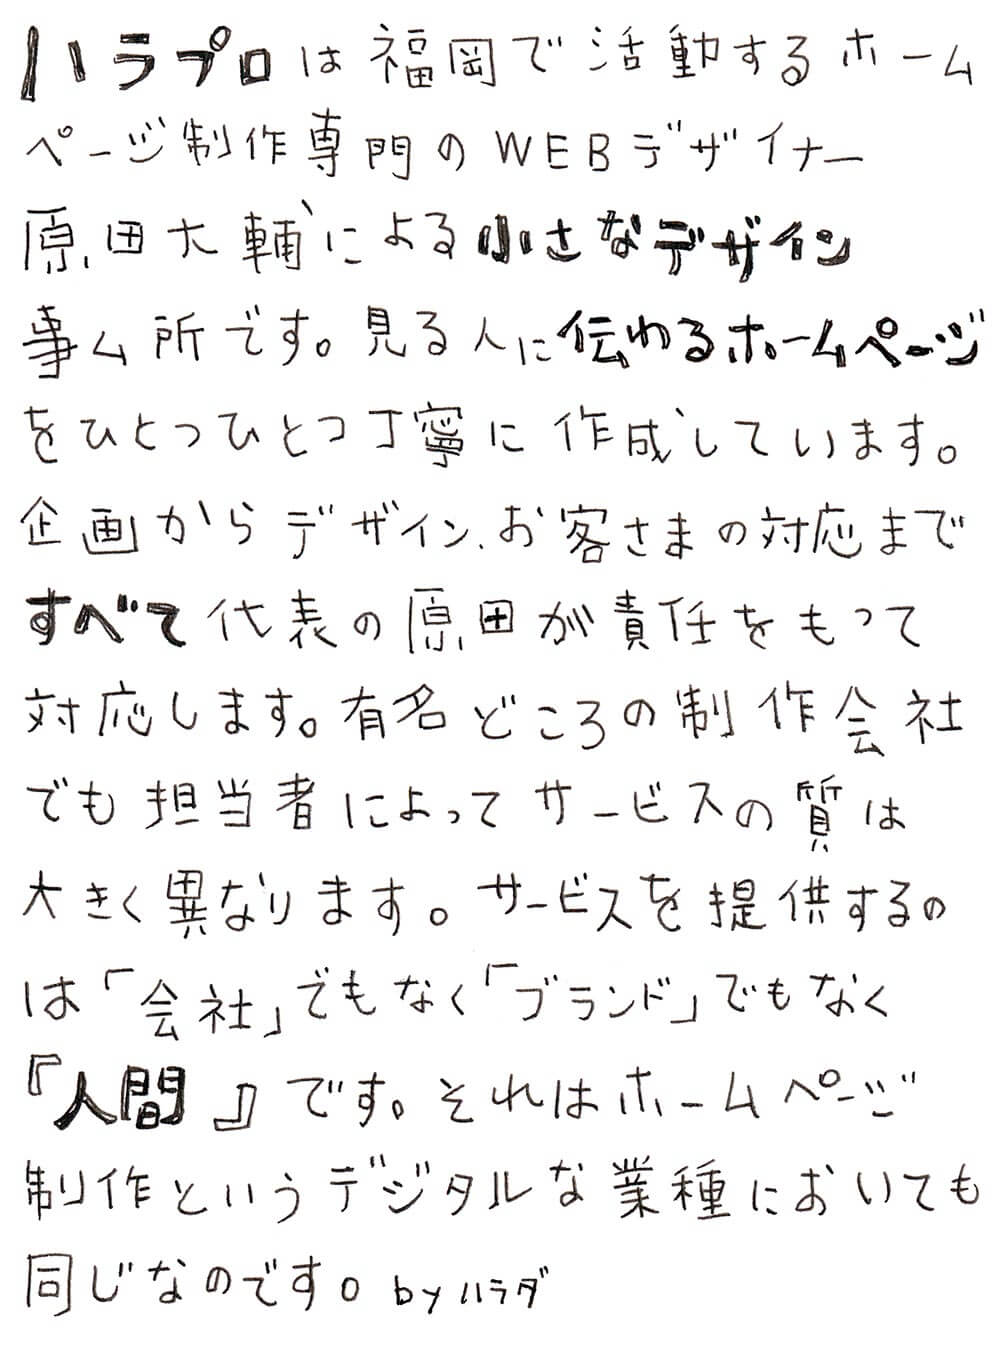 ハラプロは福岡で活動するホーム
ページ制作専門のWEBデザイナー
原田大輔による小さなデザイン
事ム所です。見る人に伝わるホームページ
をひとつひとつ丁寧に作成しています。
企画からデザイン、お客さまの対応まで
すべて代表の原田が責任をもって
対応します。有名どころの制作会社
でも担当者によってサービスの質は
大きく異なります。サービスを提供するの
は「会社」でもなく「ブランド」でもなく
『人間』です。それはホームページ
制作というデジタルな業種においても
同じなのです。byハラダ